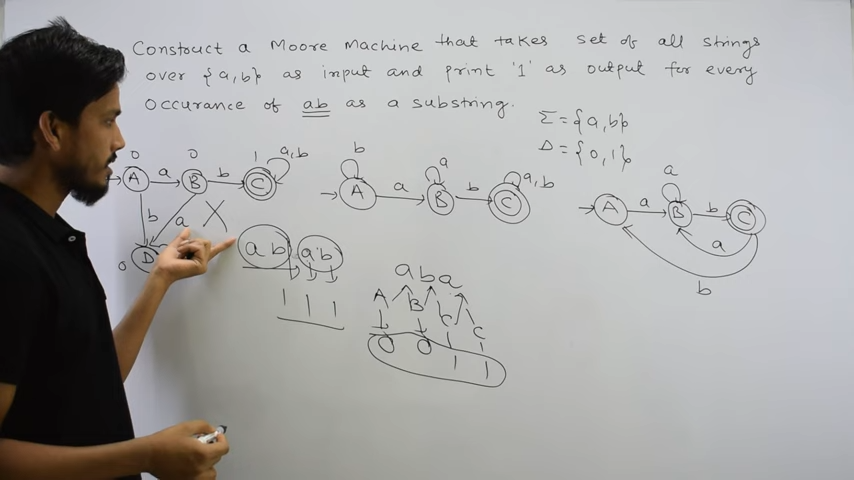 Construct a Moore Machine that takes set of all strings
over {a,b} as input and print '1' as output for every
occurance of ab as a substring.
Σ = {a,b}
Δ = {0,1}
0 0 1 a,b
A a B b C
b a X
0 D
b a a,b
A a B b C
a
A a B b C
a
b
ab ab
1 1 1
aba
A B C C
0 0 1 1